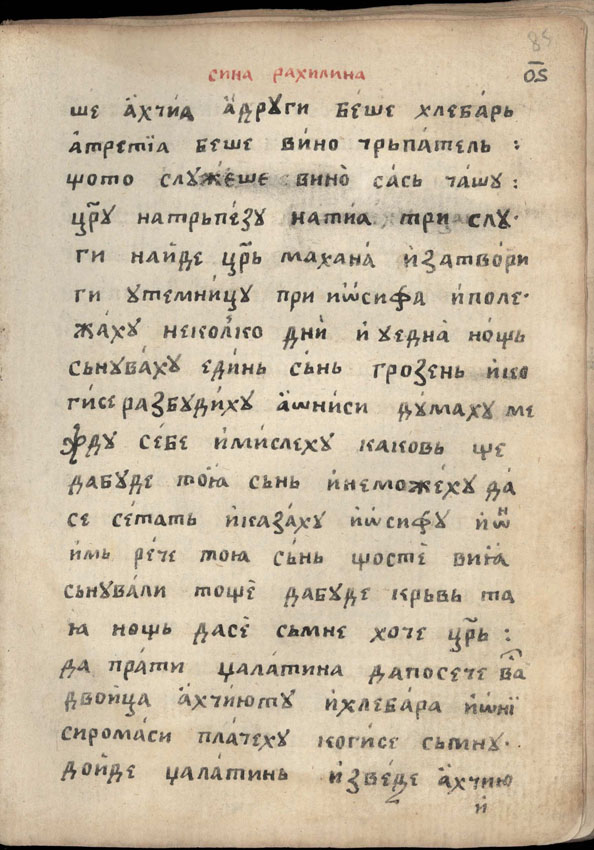 85
сина рахилина
ѻ҃ѕ
ше а҆хчи́ꙗ а҆дрꙋги бе́ше хлеба́рь
а҆трети́ꙗ беше ви́но чрьпа́тель :
щото слꙋже́ше винѐ са́сь ча́шꙋ :
цр҃ꙋ натрьпе́зꙋ натиꙗ три слꙋ·
ги на́йде цр҃ь махана̀ и҆затво́ри
ги ꙋтемни́цꙋ при иѡ҆сифа и҆поле·
жа́хꙋ неколко дни̑ и҆ ꙋедна̀ но́щь
сьнꙋва́хꙋ еди́нь сь́нь грозень и҆ко
ги́се разбꙋди́хꙋ а҆ѡни́си дꙋ́махꙋ ме
ждꙋ се́бе и҆мислехꙋ каковь ще
дабꙋде то́ꙗ сьнь и҆неможе́хꙋ да́
се се́тать и҆каза́хꙋ и҆ѡ҆сифꙋ и҆ѡ҆н
и҆мь ре́че тоꙗ сь́нь щостѐ виꙗ
сьнꙋва́ли тощѐ дабꙋде крьвь та
ꙗ нощь дасѐ сьмне хоче цр҃ь :
да пра́ти џала́тина дапосече ва
двои́ца а҆хчи́ютꙋ и҆хлеба́ра и҆ѡ҆нї
сирома́си пла́чехꙋ коги́се сьмнꙋ·
до́йде џала́тинь и҆зве́де а҆хчию
и҆